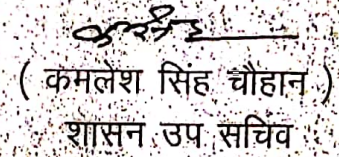 ( कमलेश सिंह चौहान )
शासन उप सचिव